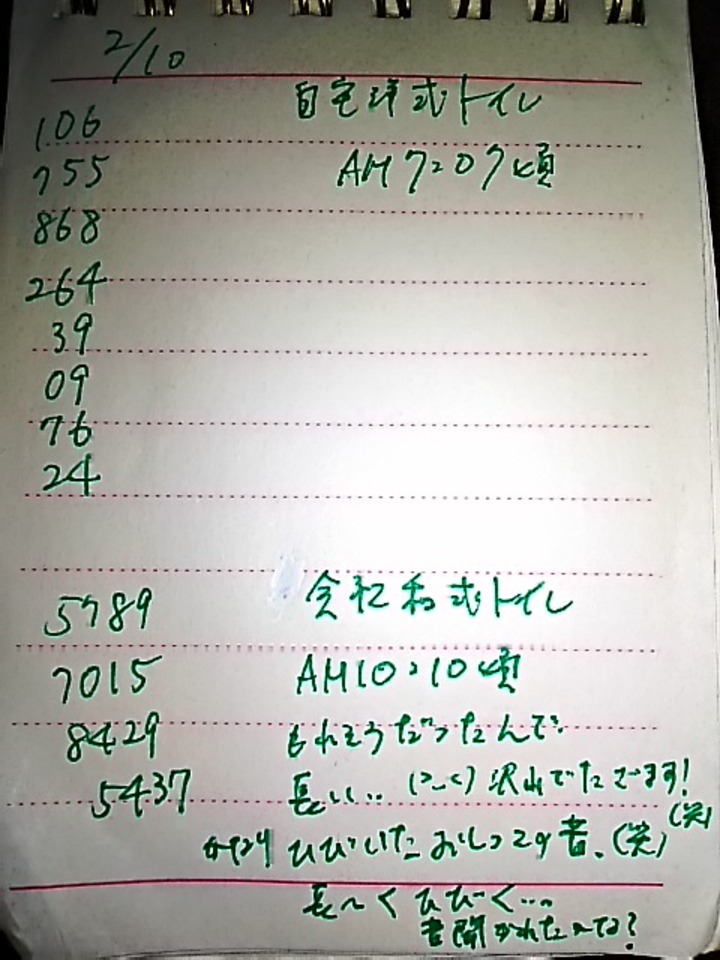 2/10
106 自宅洋式トイレ
755 AM7:07頃
868
264
39
09
76
24
5789 会社和式トイレ
7015 AM10:10頃
8429 もれそうだったんで
5437 長い.. 沢山でたでます!
ひびいたおしっこの音、(笑) (笑)
長〜くひびく...
音聞かれたかな?